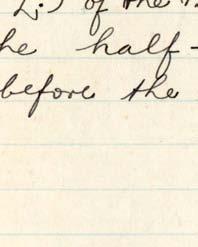 of the
he half-
before the